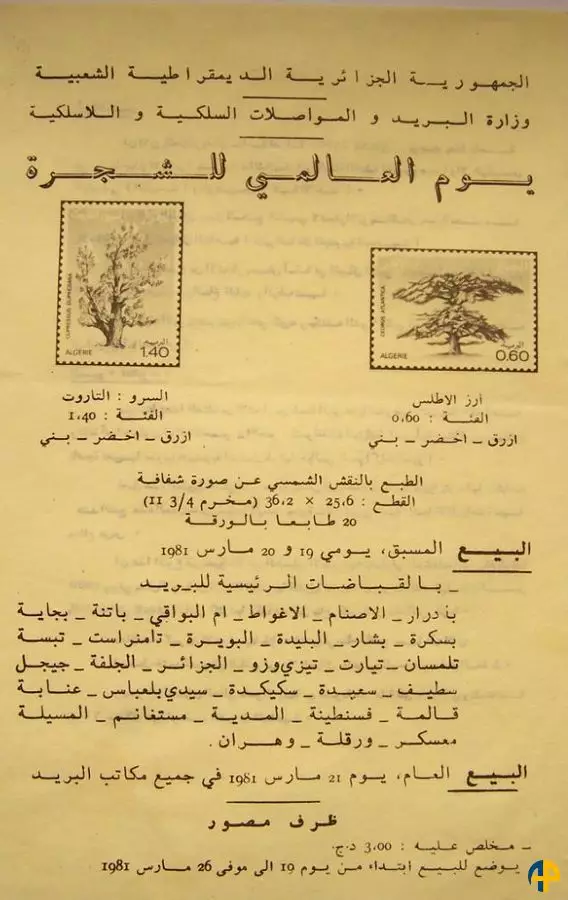 الجمهورية الجزائرية الديمقراطية الشعبية
وزارة البريد و المواصلات السلكية و اللاسلكية
يوم العالمي للشجرة
CUPRESSUS DUPREZIANA
ALGERIE
1.40
CEDRUS ATLANTICA
ALGERIE
0.60
أرز الاطلس
الفئة : 0,60
ازرق _ اخضر _ بني
السرو : التاروت
الفئة : 1,40
ازرق _ اخضر _ بني
الطبع بالنقش الشمسي عن صورة شفافة
القطع : 25,6 × 36,2 (مخرم 3/4 11)
20 طابعا بالورقة
البيع المسبق، يومي 19 و 20 مارس 1981
_ بالقباضات الرئيسية للبريد
بادرار _ الاصنام _ الاغواط _ ام البواقي _ باتنة _ بجاية
بسكرة _ بشار _ البليدة _ البويرة _ تامنراست _ تبسة
تلمسان _ تيارت _ تيزي وزو _ الجزائر _ الجلفة _ جيجل
سطيف _ سعيدة _ سكيكدة _ سيدي بلعباس _ عنابة
قالمة _ قسنطينة _ المدية _ مستغانم _ المسيلة
معسكر _ ورقلة _ وهران .
البيع العام، يوم 21 مارس 1981 في جميع مكاتب البريد
ظرف مصور
_ مخلص عليه : 3,00 د.ج.
يوضع للبيع ابتداء من يوم 19 الى موفى 26 مارس 1981